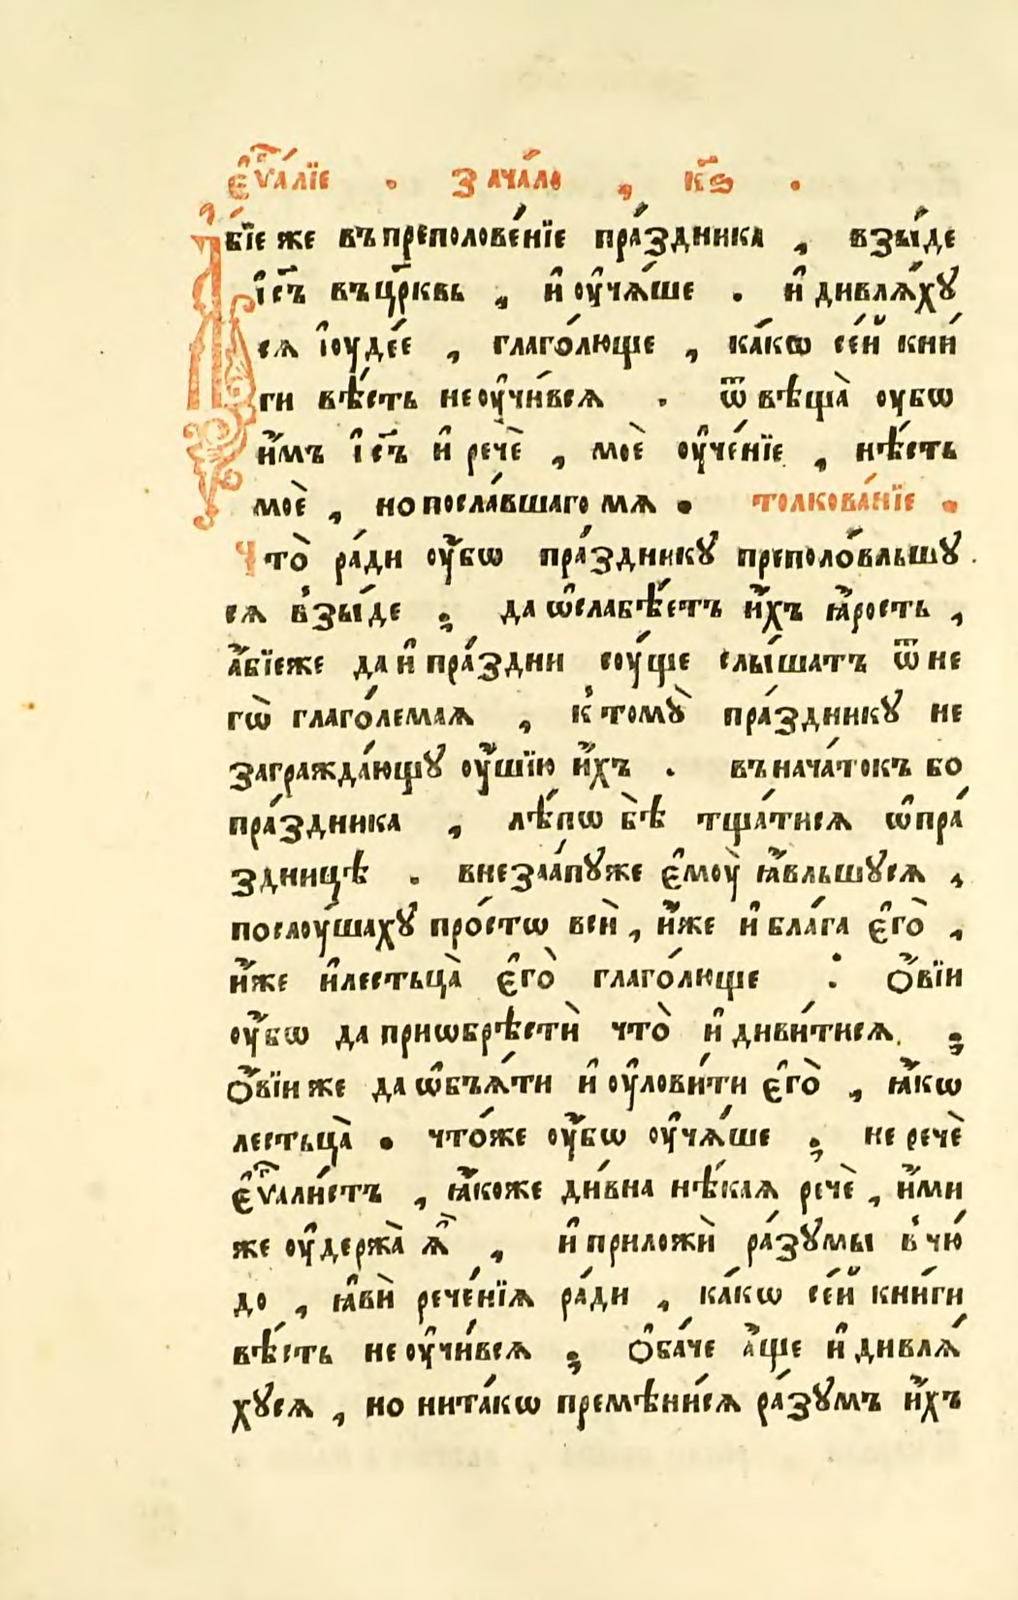 є҆ѵⷢ҇а́лїе . зача́ло , к҃ѕ .
А҆́бїе же въ преполове́нїе пра́здника , взы́де
і҆с҃ъ въ цр҃квь , и҆ оу҆ча́ше . и҆ дивлѧ́хꙋ
сѧ і҆оуде́е , глаго́люще , ка́кѡ се́й кни́
ги вѣ́сть не оу҆чи́всѧ . ѿвѣща̀ оубѡ
и҆̀мъ і҆с҃ъ и҆ речѐ , моѐ оу҆че́нїе , нѣ́сть
моѐ , но посла́вшаго мѧ . толкова́нїе .
Что̀ ра́ди оу҆́бѡ пра́здникꙋ преполо́вльшꙋ
сѧ взы́де ; да ѡ҆слабѣ́етъ и҆́хъ ꙗ҆́рость ,
а҆́бїеже да и҆ пра́здни соу́ще слы́шатъ ѿ не
гѡ̀ глаго́лемаѧ , к томꙋ̀ пра́здникꙋ не
загражда́ющꙋ оу҆́шїю и҆́хъ . въ нача́токъ бо
пра́здника , лѣ́пѡ бѣ̀ тща́тисѧ ѡ҆ пра́
здницѣ . внезаа́пꙋже є҆моу̀ ꙗ҆́вльшꙋсѧ ,
послоу́шахꙋ про́стѡ всѝ , и҆́же и҆ бла́га є҆го̀ ,
и҆́же и҆ лестьца̀ є҆го̀ глаго́люще : Ѻ҆́вїи
оу҆́бѡ да приѡбрѣстѝ что̀ и҆ диви́тисѧ ;
Ѻ҆́вїи же да ѡ҆бъѧ́ти и҆ оу҆лови́ти є҆го̀ , ꙗ҆́кѡ
лестьца̀ . что́же оу҆́бѡ оу҆ча́ше ; не речѐ
є҆ѵⷢ҇али́стъ , ꙗ҆́коже ди́вна нѣ́каѧ речѐ , и҆́ми
же оу҆держа̀ ѧ҆̀ , и҆ приложѝ ра́зꙋмы в чю́
до , ꙗ҆вѝ рече́нїѧ ра́ди , ка́кѡ се́й кни́ги
вѣ́сть не оу҆чи́всѧ ; Ѻ҆ба́че а҆́ще и҆ дивлѧ́
хꙋсѧ , но нита́кѡ премѣни́сѧ ра́зꙋмъ и҆́хъ